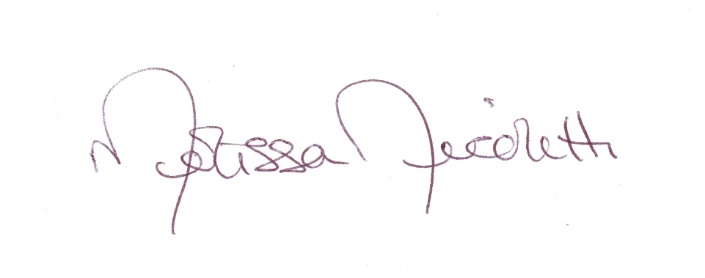 Melissa Nicoletti